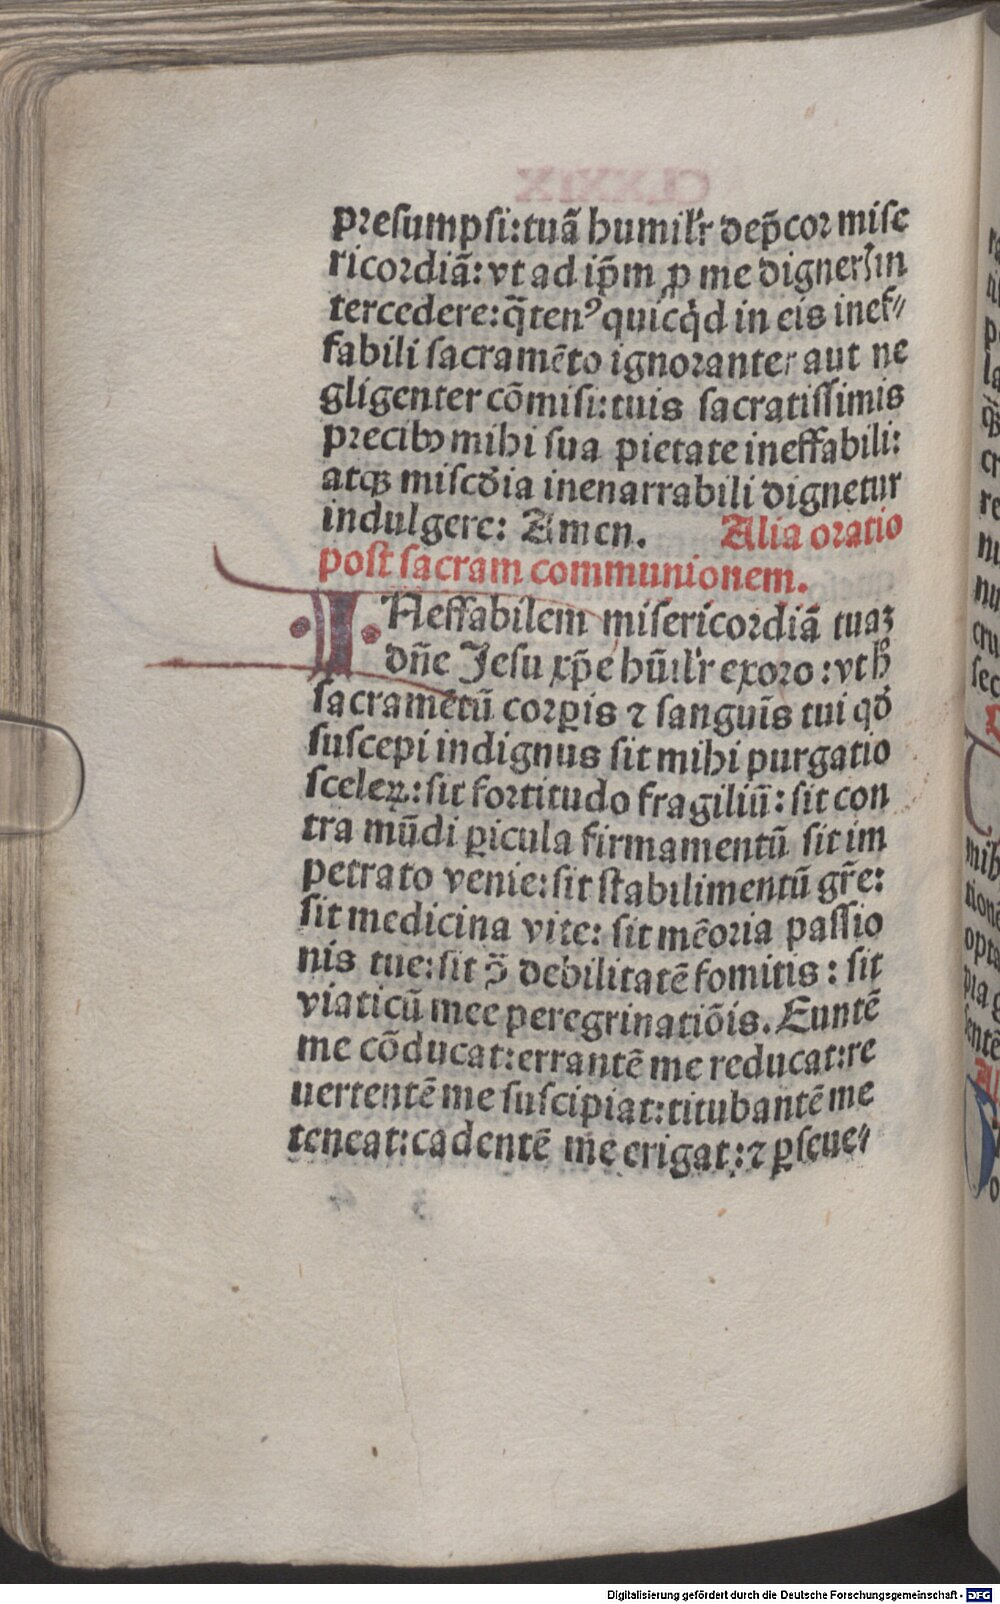 preſumpſi: tuã humilr̃ dep̃cor miſe
ricordiã: vt ad ip̃m ꝓ me digneriſ in
tercedere: q̃tenꝰ quicq̇d in eis inef⸗
fabili ſacramẽto ignoranter aut ne
gligenter cõmiſi: tuis ſacratiſſimis
precibꝫ mihi ſua pietate ineffabili:
atqꝫ miſcd̓ia inenarrabili dignetur
indulgere: Amen. Alia oratio
poſt ſacram communionem.
INeffabilem miſericordiã tuaꝫ
dñe Jeſu xp̃e hũilr̃ exoro: vt h̊
ſacramẽtũ corꝑis ⁊ ſanguĩs tui qd̓
ſuſcepi indignus ſit mihi purgatio
ſceleꝝ: ſit fortitudo fragiliũ: ſit con
tra mũdi ꝑicula firmamentũ ſit im
petrato venie: ſit ſtabilimentũ gr̃e:
ſit medicina vite: ſit mẽoria paſſio
nis tue: ſit ↄ̃ debilitatẽ fomitis: ſit
viaticũ mee peregrinatiõis. Euntẽ
me cõducat: errantẽ me reducat: re
uertentẽ me ſuſcipiat: titubantẽ me
teneat: cadentẽ me erigat: ⁊ ꝑſeue⸗
Digitalisierung gefördert durch die Deutsche Forschungsgemeinschaft - DFG